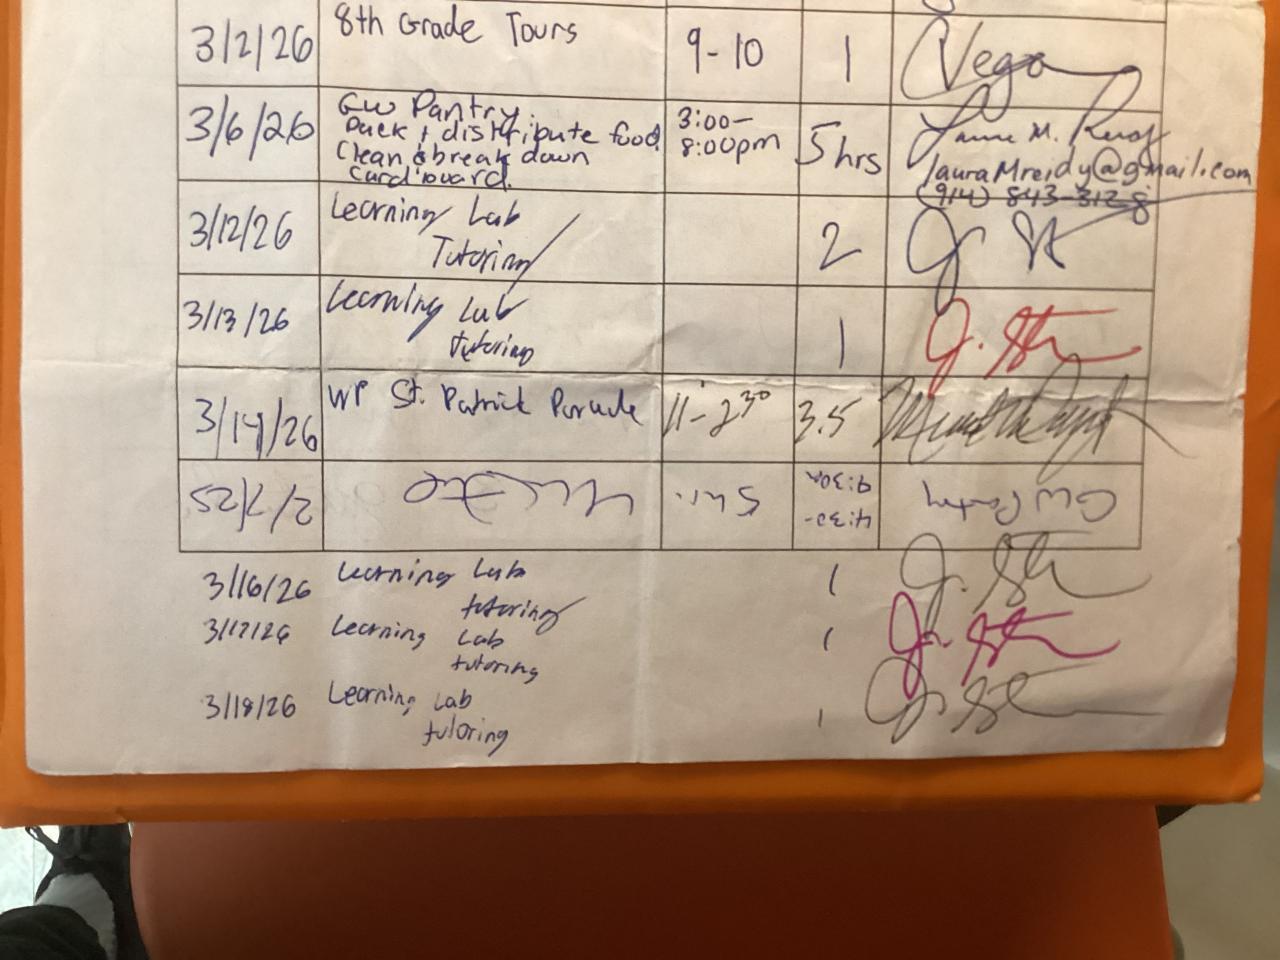 3/2/26 8th Grade Tours 9-10 1 Vega
3/6/26 GW Pantry 3:00-
Pack + distribute food 8:00pm 5 hrs
Clean & break down
Cardboard.
Laura M. Reidy
lauraMreidy@gmail.com
(914) 843-3128
3/12/26 Learning Lab 2
Tutoring
3/13/26 Learning Lab 1
tutoring
3/14/26 WP St. Patrick Parade 11-2³⁰ 3.5
GW Pantry 4:30- 5 hr.
9:30
3/16/26 Learning Lab 1
tutoring
3/17/26 Learning Lab 1
tutoring
3/18/26 Learning Lab 1
tutoring